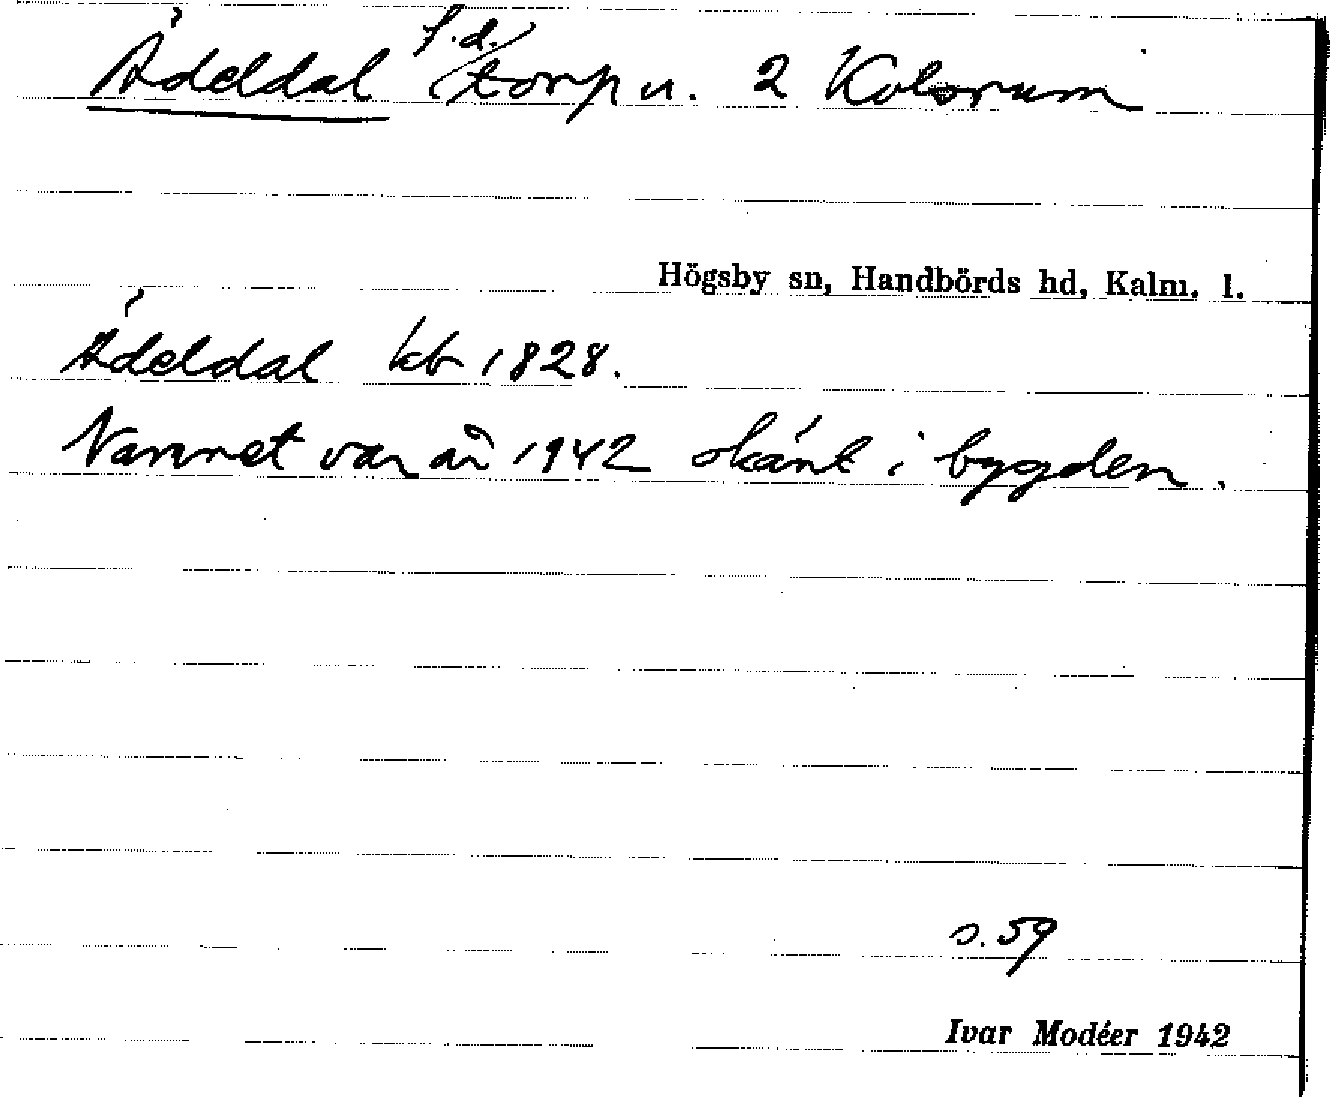 Ådeldal f.d. torp u. 2 Kolsrum
Högsby sn, Handbörds hd, Kalm. l.
Ådeldal kb 1828.
Namnet var år 1942 okänt i bygden.
s. 59
Ivar Modéer 1942